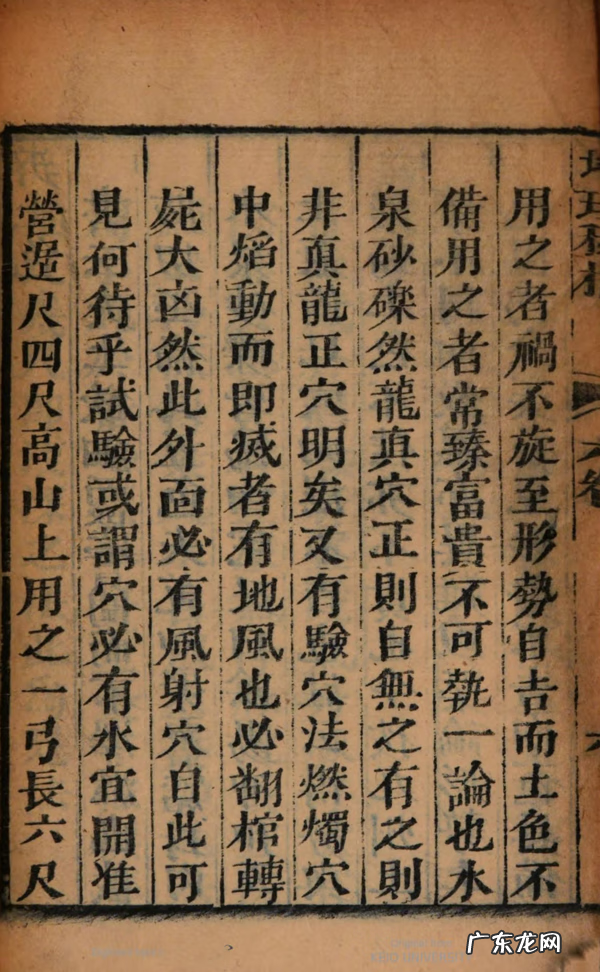 用之者禍不旋至形勢自吉而土色不
備用之者常臻富貴不可執一論也水
泉砂礫然龍真穴正則自無之有之則
非真龍正穴明矣又有驗穴法燃燭穴
中焰動而即滅者有地風也必翻棺轉
屍大凶然此外面必有風射穴自此可
見何待乎試驗或謂穴必有水宜開准
營造尺四尺高山上用之一弓長六尺
广东龙网